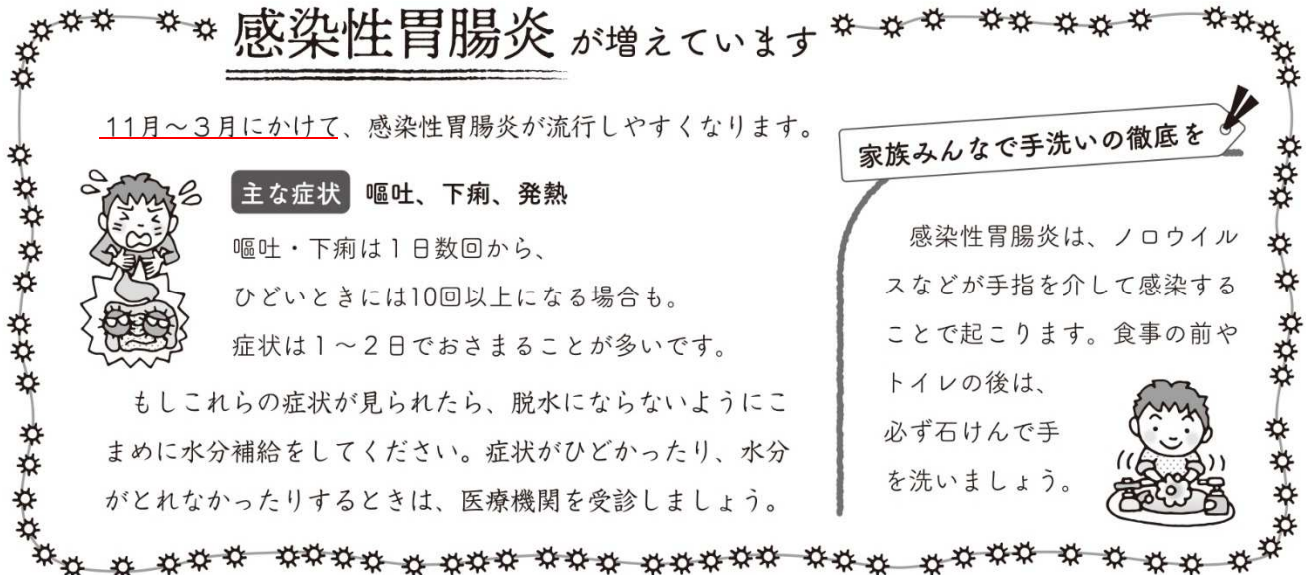 感染性胃腸炎が増えています
11月～3月にかけて、感染性胃腸炎が流行しやすくなります。
主な症状 嘔吐、下痢、発熱
嘔吐・下痢は1日数回から、
ひどいときには10回以上になる場合も。
症状は1～2日でおさまることが多いです。
もしこれらの症状が見られたら、脱水にならないようにこ
まめに水分補給をしてください。症状がひどかったり、水分
がとれなかったりするときは、医療機関を受診しましょう。
家族みんなで手洗いの徹底を
感染性胃腸炎は、ノロウイル
スなどが手指を介して感染する
ことで起こります。食事の前や
トイレの後は、
必ず石けんで手
を洗いましょう。